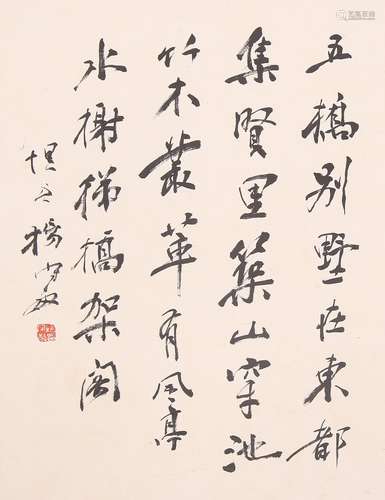 五橋別墅在東都
集賢里築山穿池
竹木叢萃有風亭
水榭梯橋架閣
惺吾楊守敬